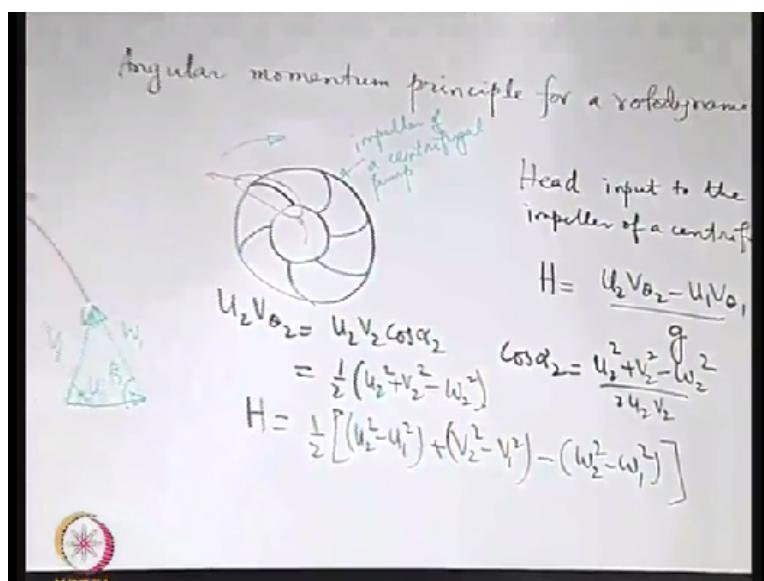 Angular momentum principle for a rotodynamic
impeller of
a centrifugal
pump
Head input to the
impeller of a centrif
H = U₂Vθ₂ - U₁Vθ₁ / g
U₂Vθ₂ = U₂V₂cosα₂
= ½(U₂²+V₂²-W₂²)
cosα₂ = U₂²+V₂²-W₂² / 2U₂V₂
H = ½[(U₂²-U₁²)+(V₂²-V₁²)-(W₂²-W₁²)]
V₁ W₁
U₁ β₁